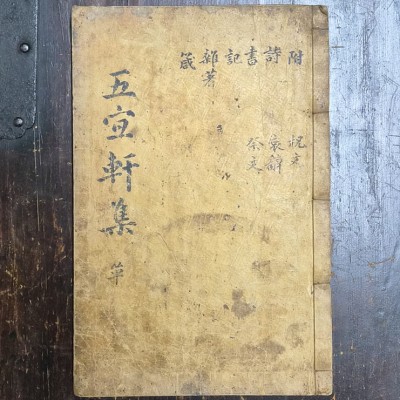 附 祝文
詩 哀辭
書 祭文
記
雜著
箴
五宜軒集